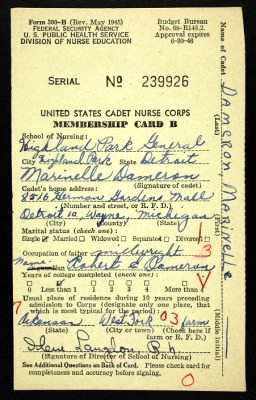 Form 300-B (Rev. May 1945)
FEDERAL SECURITY AGENCY
U. S. PUBLIC HEALTH SERVICE
DIVISION OF NURSE EDUCATION
Budget Bureau
No. 68-R146.2.
Approval expires
6-30-46
SERIAL No 239926
UNITED STATES CADET NURSE CORPS
MEMBERSHIP CARD B
School of Nursing:
Highland Park General
City Highland Park State Detroit
Marinelle Dameron
Cadet's home address: (Signature of cadet)
8516 Herman Gardens Mall
(Number and street, or R. F. D.)
Detroit 10, Wayne, Michigan
(City) (County) (State)
Marital status (check one):
Single Married Widowed Separated Divorced
1
Occupation of father millwright
3
Name Robert E. Dameron
Years of college completed (check one):
V
0 Less than 1 1 2 3 4 More than 4
Usual place of residence during 10 years preceding
admission to Corps (designate only one place, that
which is most typical for the total period):
7
Arkansas West Fork 03 farm
(State) (City or town) (Check here if
farm or R. F. D.)
R. N.
(Signature of Director of School of Nursing)
See Additional Questions on Back of Card. Please check card for
completeness and accuracy before signing.
0
Name of Cadet
DAMERON, MARINELLE
(Last)
(First)
(Middle initial)